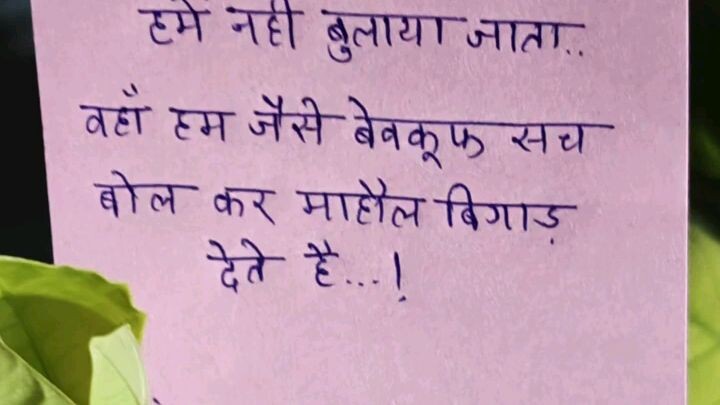 हमे नही बुलाया जाता..
वहाँ हम जैसे बेवकूफ सच
बोल कर माहौल बिगाड़
देते है...!